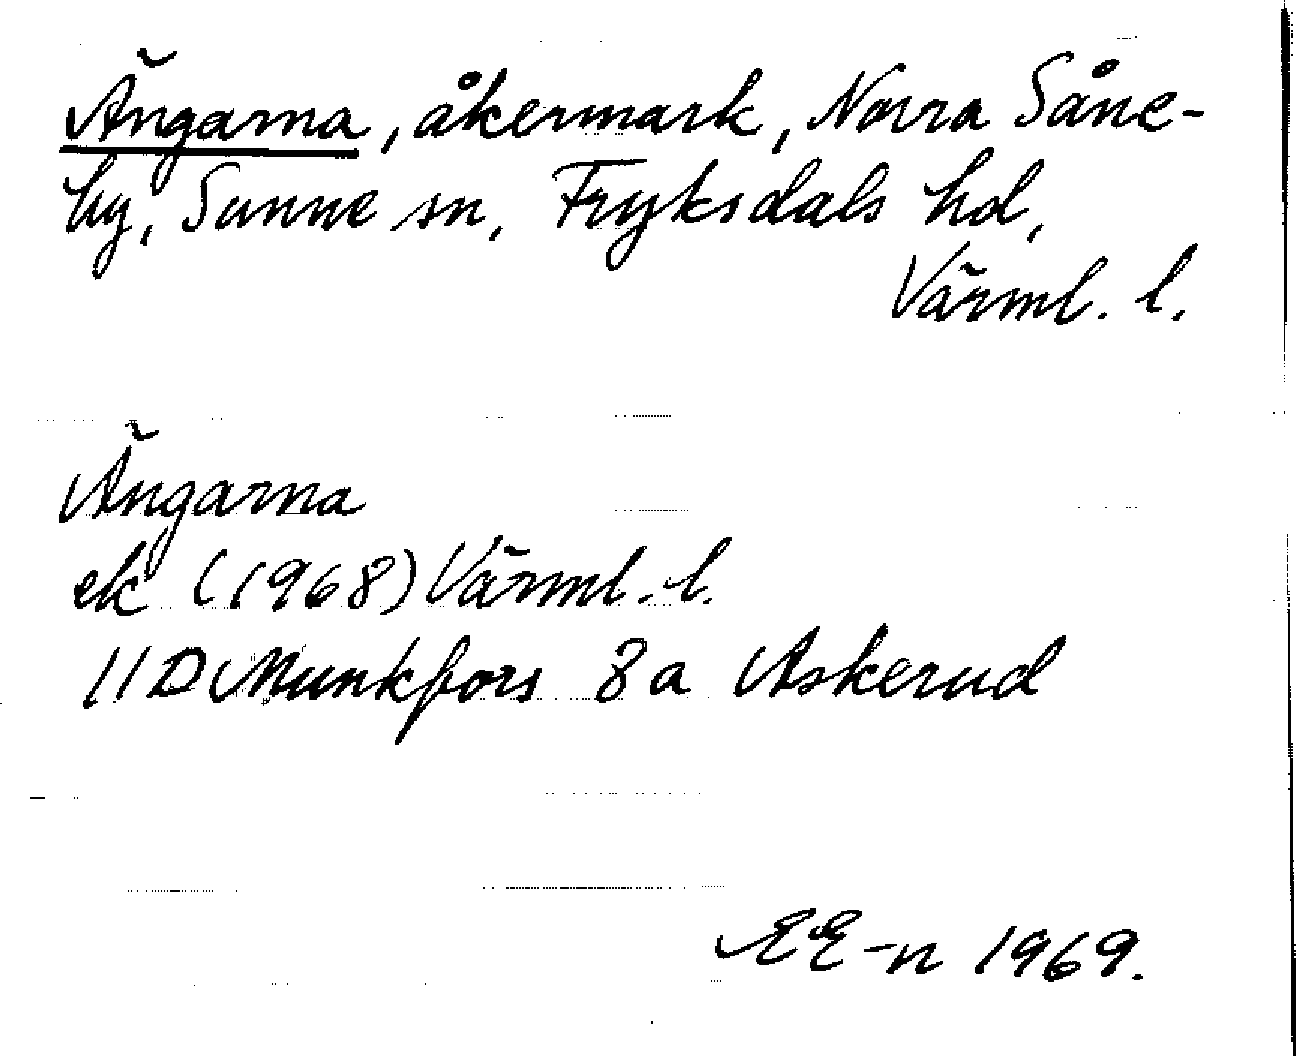 Ängarna, åkermark, Norra Såne-
by, Sunne sn, Fryksdals hd,
Värml. l.
Ängarna
ek (1968) Värml. l.
11D Munkfors 8a Askerud
EE-n 1969.